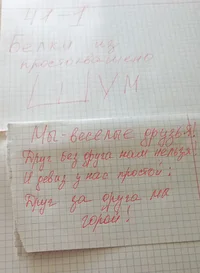 Белки из
простоквашино
Ш УМ
Мы-веселые друзья
Друг без друга нам нельзя
А девиз у нас простой:
Друг за друга мы
горой!